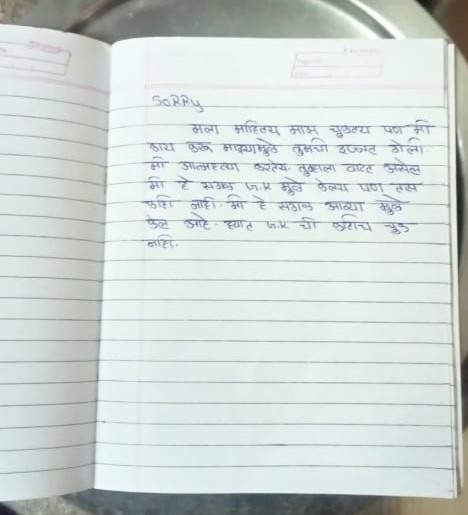 SORRY
मला माहितय माझ चुकलय पण मी
काय करू माझ्यामुळे तुमची इज्जत गेली
मी आत्महत्या करतेय. तुम्हाला वाटत असेल
मी हे सगळ G.K मुळे केलय पण तस
काही नाही. मी हे सगळ आव्या मुळे
केल आहे. ह्यात G.K ची काहीच चुक
नाही.